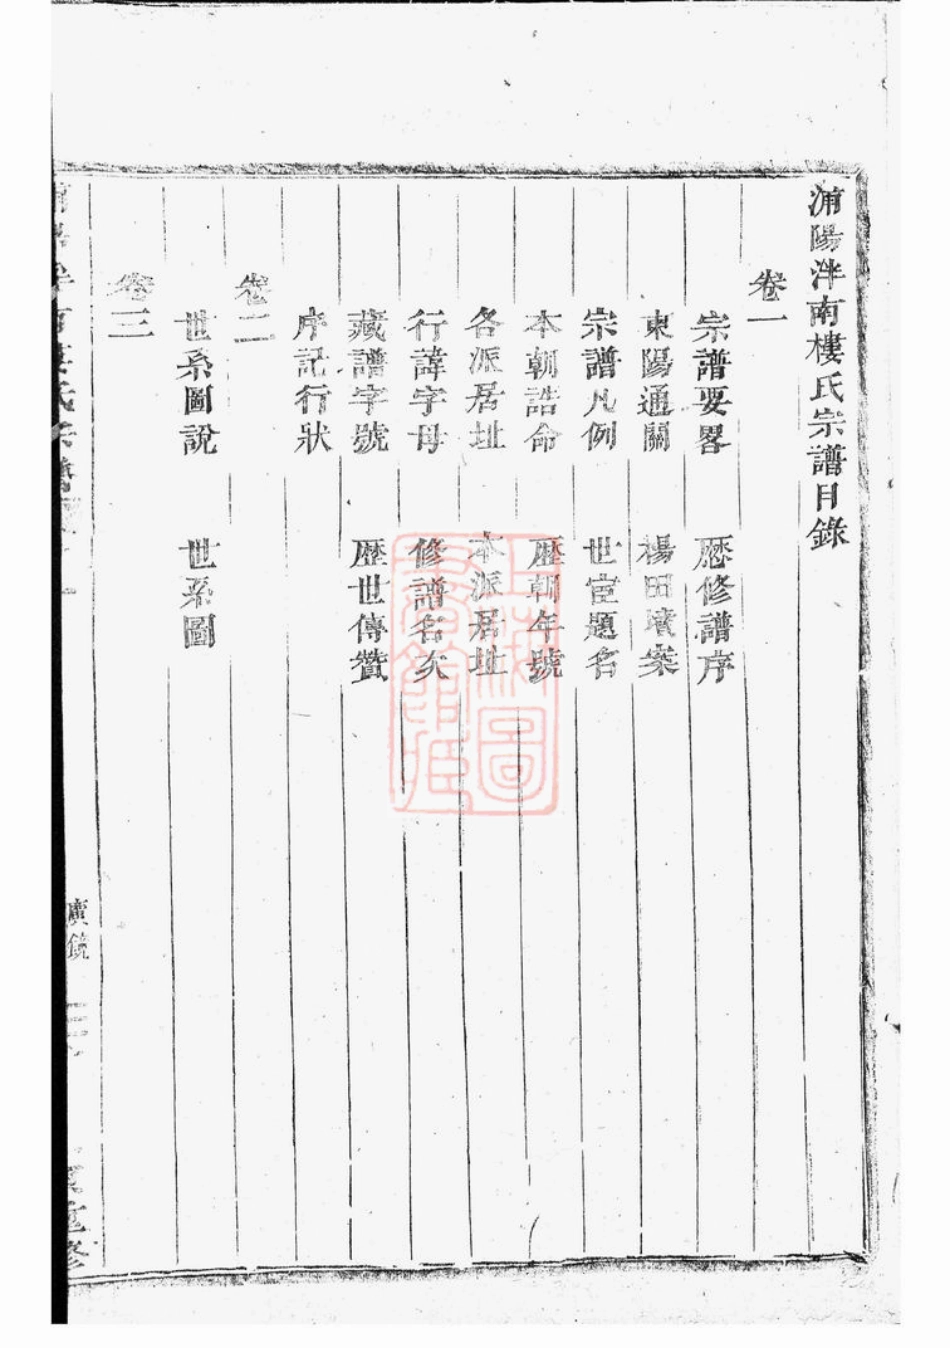 浦陽泮南樓氏宗譜目錄
卷一
宗譜要畧 歷修譜序
東陽通關 楊田墳案
宗譜凡例 世宦題名
本朝誥命 歷朝年號
各派居址 本派居址
行諱字母 修譜名次
藏譜字號 歷世傳贊
序記行狀
卷二
世系圖說 世系圖
卷三
廣鏡
重修